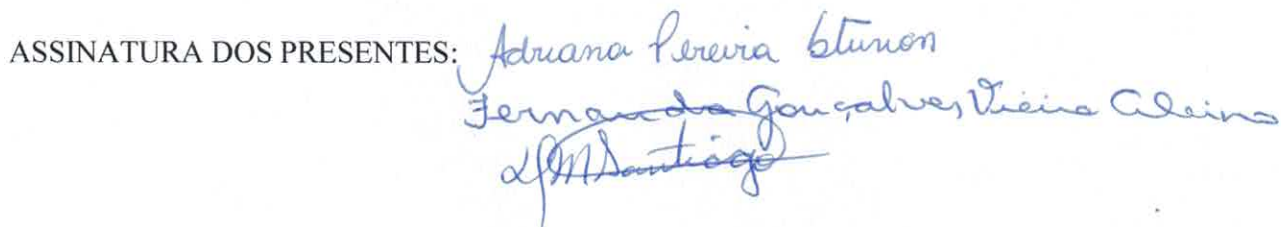 ASSINATURA DOS PRESENTES: Adriana Pereira
Fernanda Gonçalves Vieira
Santiago